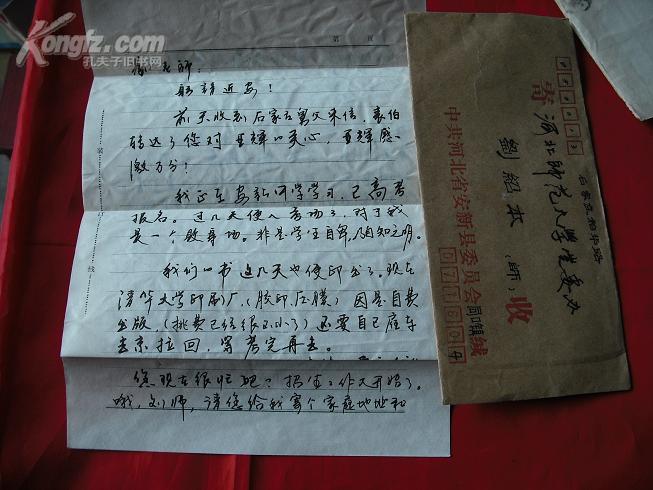 Kongfz.com
孔夫子旧书网
第 页
师:
躬請近安!
前天收到石家庄寓父来信,袁伯
转达了您对亚辉的关心,亚辉感
激万分!
我正在安新同学学习,已高考
报名。过几天便入考场了,对于我
是一个败辱场。非是学生自卑,自知之明。
我们的书这几天也便印出了。现在
清华大学印刷厂(胶印后膜)因是自费
出版,(挑费已经很不小了)还要自己雇车
去京拉回,等考完再去。
您现在很忙吧?招生工作大开始了。
哦,刘师,请您给我寄个家庭地址和
装
线
寄
河北师范大学党委办
石家庄裕华路
劉紹本(师)收
中共河北省安新县委员会同口镇缄
071604